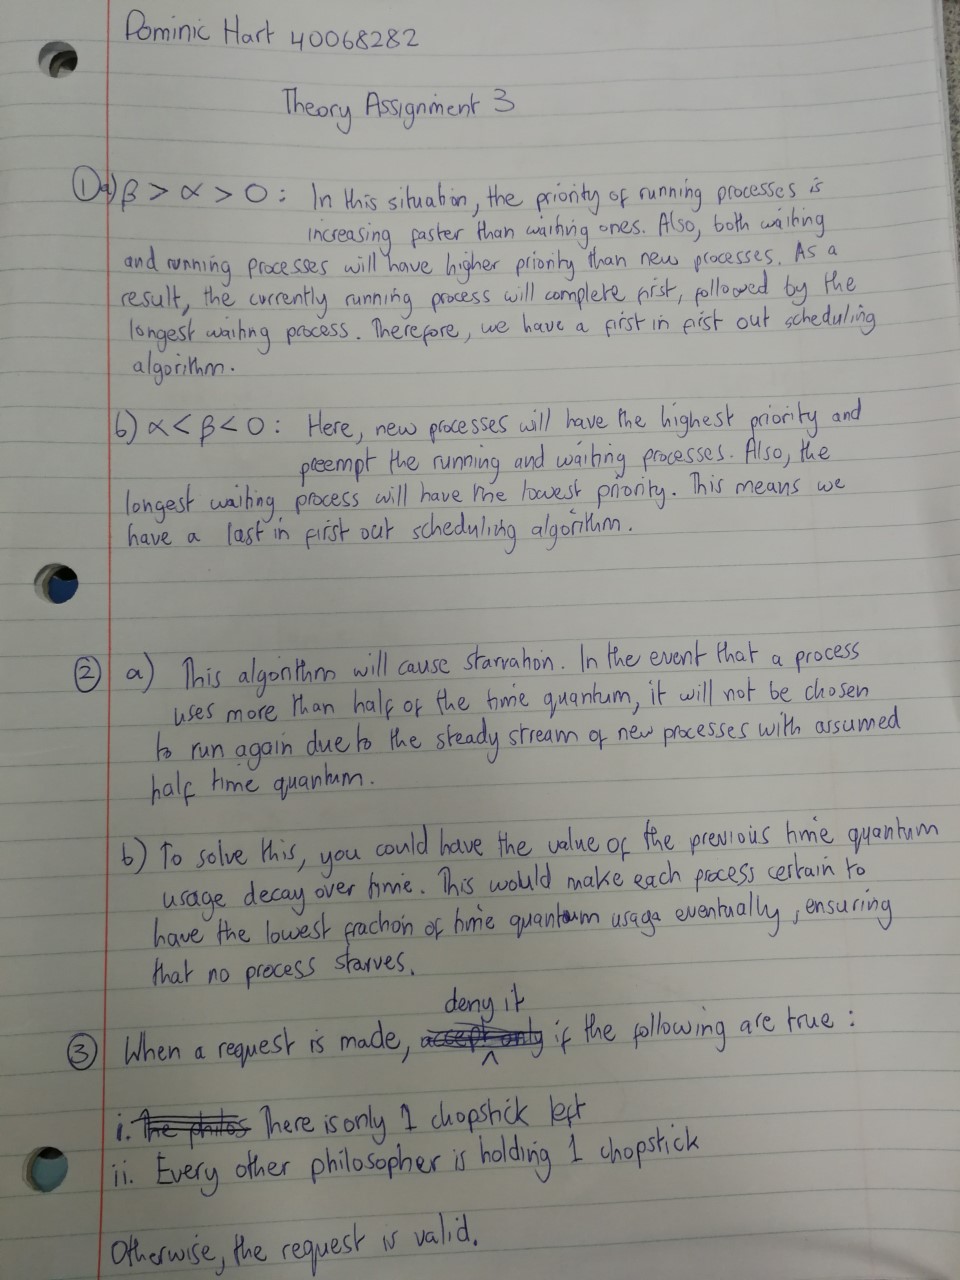 Dominic Hart 40068282
Theory Assignment 3
① a) β > α > 0 : In this situation, the priority of running processes is
increasing faster than waiting ones. Also, both waiting
and running processes will have higher priority than new processes. As a
result, the currently running process will complete first, followed by the
longest waiting process. Therefore, we have a first in first out scheduling
algorithm.
b) α < β < 0 : Here, new processes will have the highest priority and
preempt the running and waiting processes. Also, the
longest waiting process will have the lowest priority. This means we
have a last in first out scheduling algorithm.
② a) This algorithm will cause starvation. In the event that a process
uses more than half of the time quantum, it will not be chosen
to run again due to the steady stream of new processes with assumed
half time quantum.
b) To solve this, you could have the value of the previous time quantum
usage decay over time. This would make each process certain to
have the lowest fraction of time quantum usage eventually, ensuring
that no process starves.
deny it
③ When a request is made, accept only if the following are true :
i. The philos There is only 1 chopstick left
ii. Every other philosopher is holding 1 chopstick
Otherwise, the request is valid.